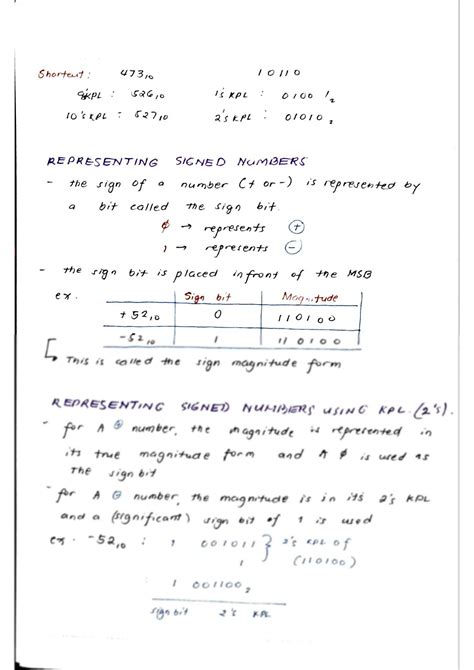 Shortcut : 473₁₀ 10110
9's KPL : 526₁₀ 1's KPL : 01001₂
10's KPL : 527₁₀ 2's KPL : 01010₂
REPRESENTING SIGNED NUMBERS
- the sign of a number (+ or -) is represented by
a bit called the sign bit.
0 → represents (+)
1 → represents (-)
- the sign bit is placed infront of the MSB
ex. Sign bit Magnitude
+52₁₀ 0 110100
-52₁₀ 1 110100
↳ This is called the sign magnitude form
REPRESENTING SIGNED NUMBERS USING KPL. (2's).
- for A ⊕ number, the magnitude is represented in
its true magnitude form and A 0 is used as
The sign bit
- for A ⊖ number, the magnitude is in its 2's KPL
and a (significant) sign bit of 1 is used
ex. -52₁₀ : 1 001011 } 2's KPL of
1 (110100)
1 001100₂
sign bit 2's KPL